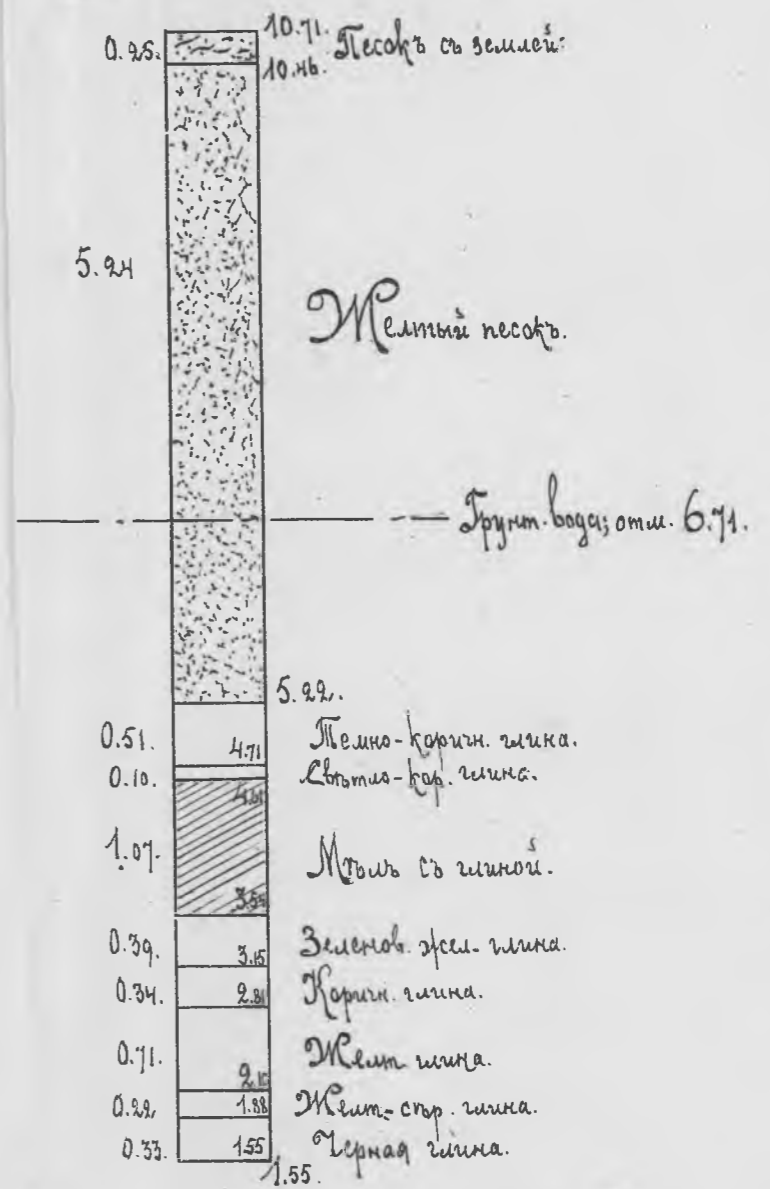 10.71.
0.25. Песокъ съ землей:
10.46.
5.24
Желтый песокъ.
Грунт. вода; отм. 6.71.
5.22.
0.51. 4.71 Темно-коричн. глина.
0.10. Свѣтло-кор. глина.
4.61
1.07. Мѣлъ съ глиной.
3.54
0.39. 3.15 Зеленов. жел. глина.
0.34. 2.81 Коричн. глина.
0.71. Желт. глина.
2.10
0.22. 1.88 Желт-сѣр. глина.
0.33. 1.55 Черная глина.
1.55.